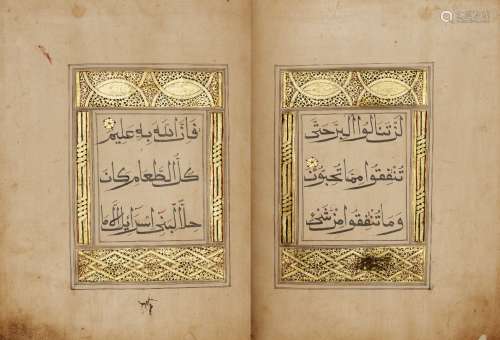 لن تنالوا البر حتى
تنفقوا مما تحبون
وما تنفقوا من شيء
فإن الله به عليم
كل الطعام كان
حلا لبني اسرائيل الا ما